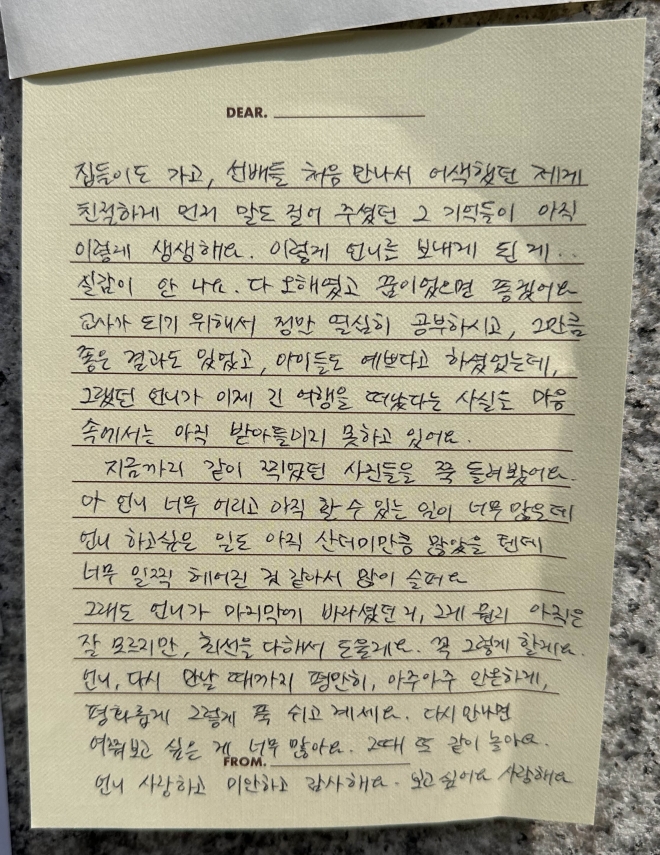 DEAR.
집들이도 가고, 선배들 처음 만나서 어색했던 제게
친절하게 먼저 말도 걸어 주셨던 그 기억들이 아직
이렇게 생생해요. 이렇게 언니를 보내게 된 게..
실감이 안 나요. 다 오해였고 꿈이었으면 좋겠어요
교사가 되기 위해서 정말 열심히 공부하시고, 그만큼
좋은 결과도 있었고, 아이들도 예쁘다고 하셨었는데,
그랬던 언니가 이제 긴 여행을 떠났다는 사실을 마음
속에서는 아직 받아들이지 못하고 있어요.
지금까지 같이 찍었던 사진들을 쭉 둘러봤어요.
아 언니 너무 어리고 아직 할 수 있는 일이 너무 많은데
언니 하고싶은 일도 아직 산더미만큼 많았을 텐데
너무 일찍 헤어진 것 같아서 많이 슬퍼요
그래도 언니가 마지막에 바라셨던 거, 그게 뭔지 아직은
잘 모르지만, 최선을 다해서 도울게요. 꼭 그렇게 할게요.
언니, 다시 만날 때까지 평안히, 아주아주 안온하게,
평화롭게 그렇게 푹 쉬고 계세요. 다시 만나면
여쭤보고 싶은 게 너무 많아요. 그때 또 같이 놀아요.
FROM.
언니 사랑하고 미안하고 감사해요. 보고싶어요 사랑해요